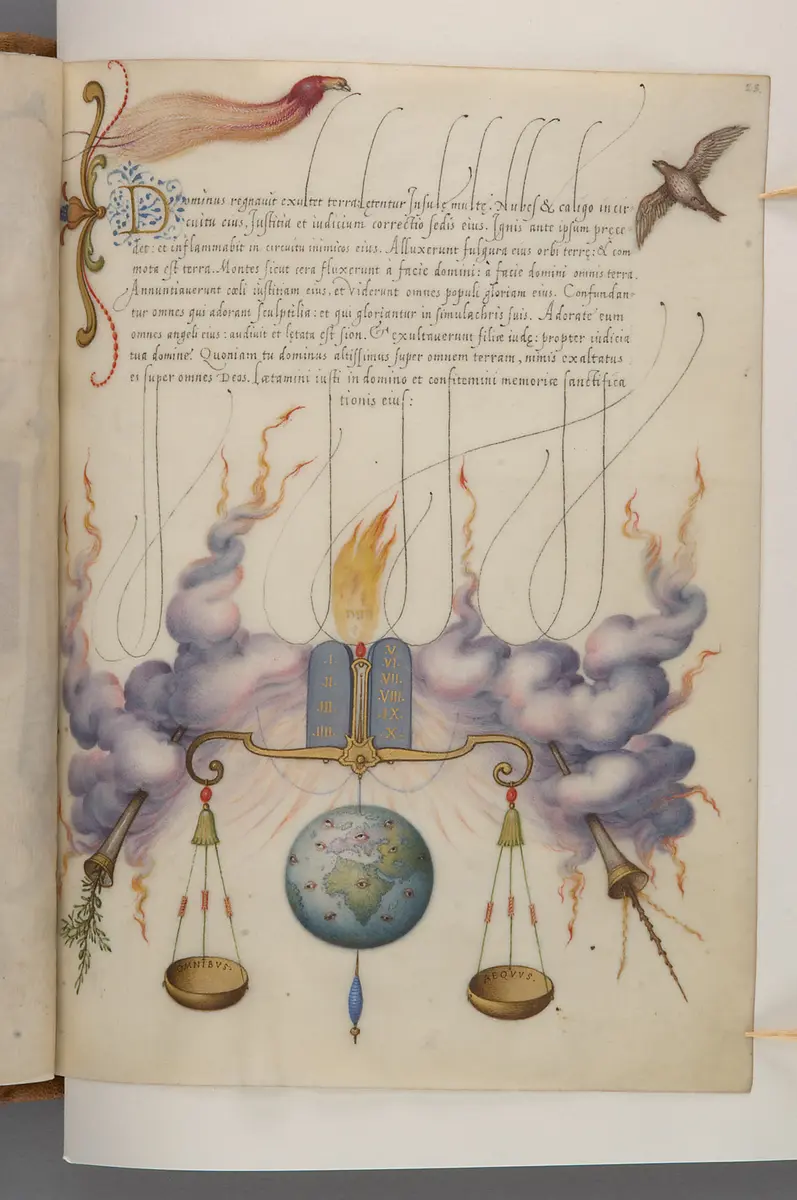 25.
Dominus regnauit exultet terra: letentur Insulę multę. Nubes & caligo in cir
cuitu eius, Justitia et iudicium correctio sedis eius. Ignis ante ipsum pręce
det: et inflammabit in circuitu inimicos eius. Alluxerunt fulgura eius orbi terrę: & com
mota est terra. Montes sicut cera fluxerunt à facie domini: à facie domini omnis terra.
Annuntiauerunt cœli iustitiam eius, et viderunt omnes populi gloriam eius. Confundan-
tur omnes qui adorant sculptilia: et qui gloriantur in simulachris suis. Adorate eum
omnes angeli eius: audiuit et letata est sion. & exultauerunt filiæ iudę: propter iudicia
tua domine! Quoniam tu dominus altissimus super omnem terram, nimis exaltatus
es super omnes Deos. Lætamini iusti in domino et confitemini memoriæ sanctifica
tionis eius:
.I.
.II.
.III.
.IIII.
V.
.VI.
.VII.
.VIII.
.IX.
.X.
OMNIBVS.
AEQVVS.